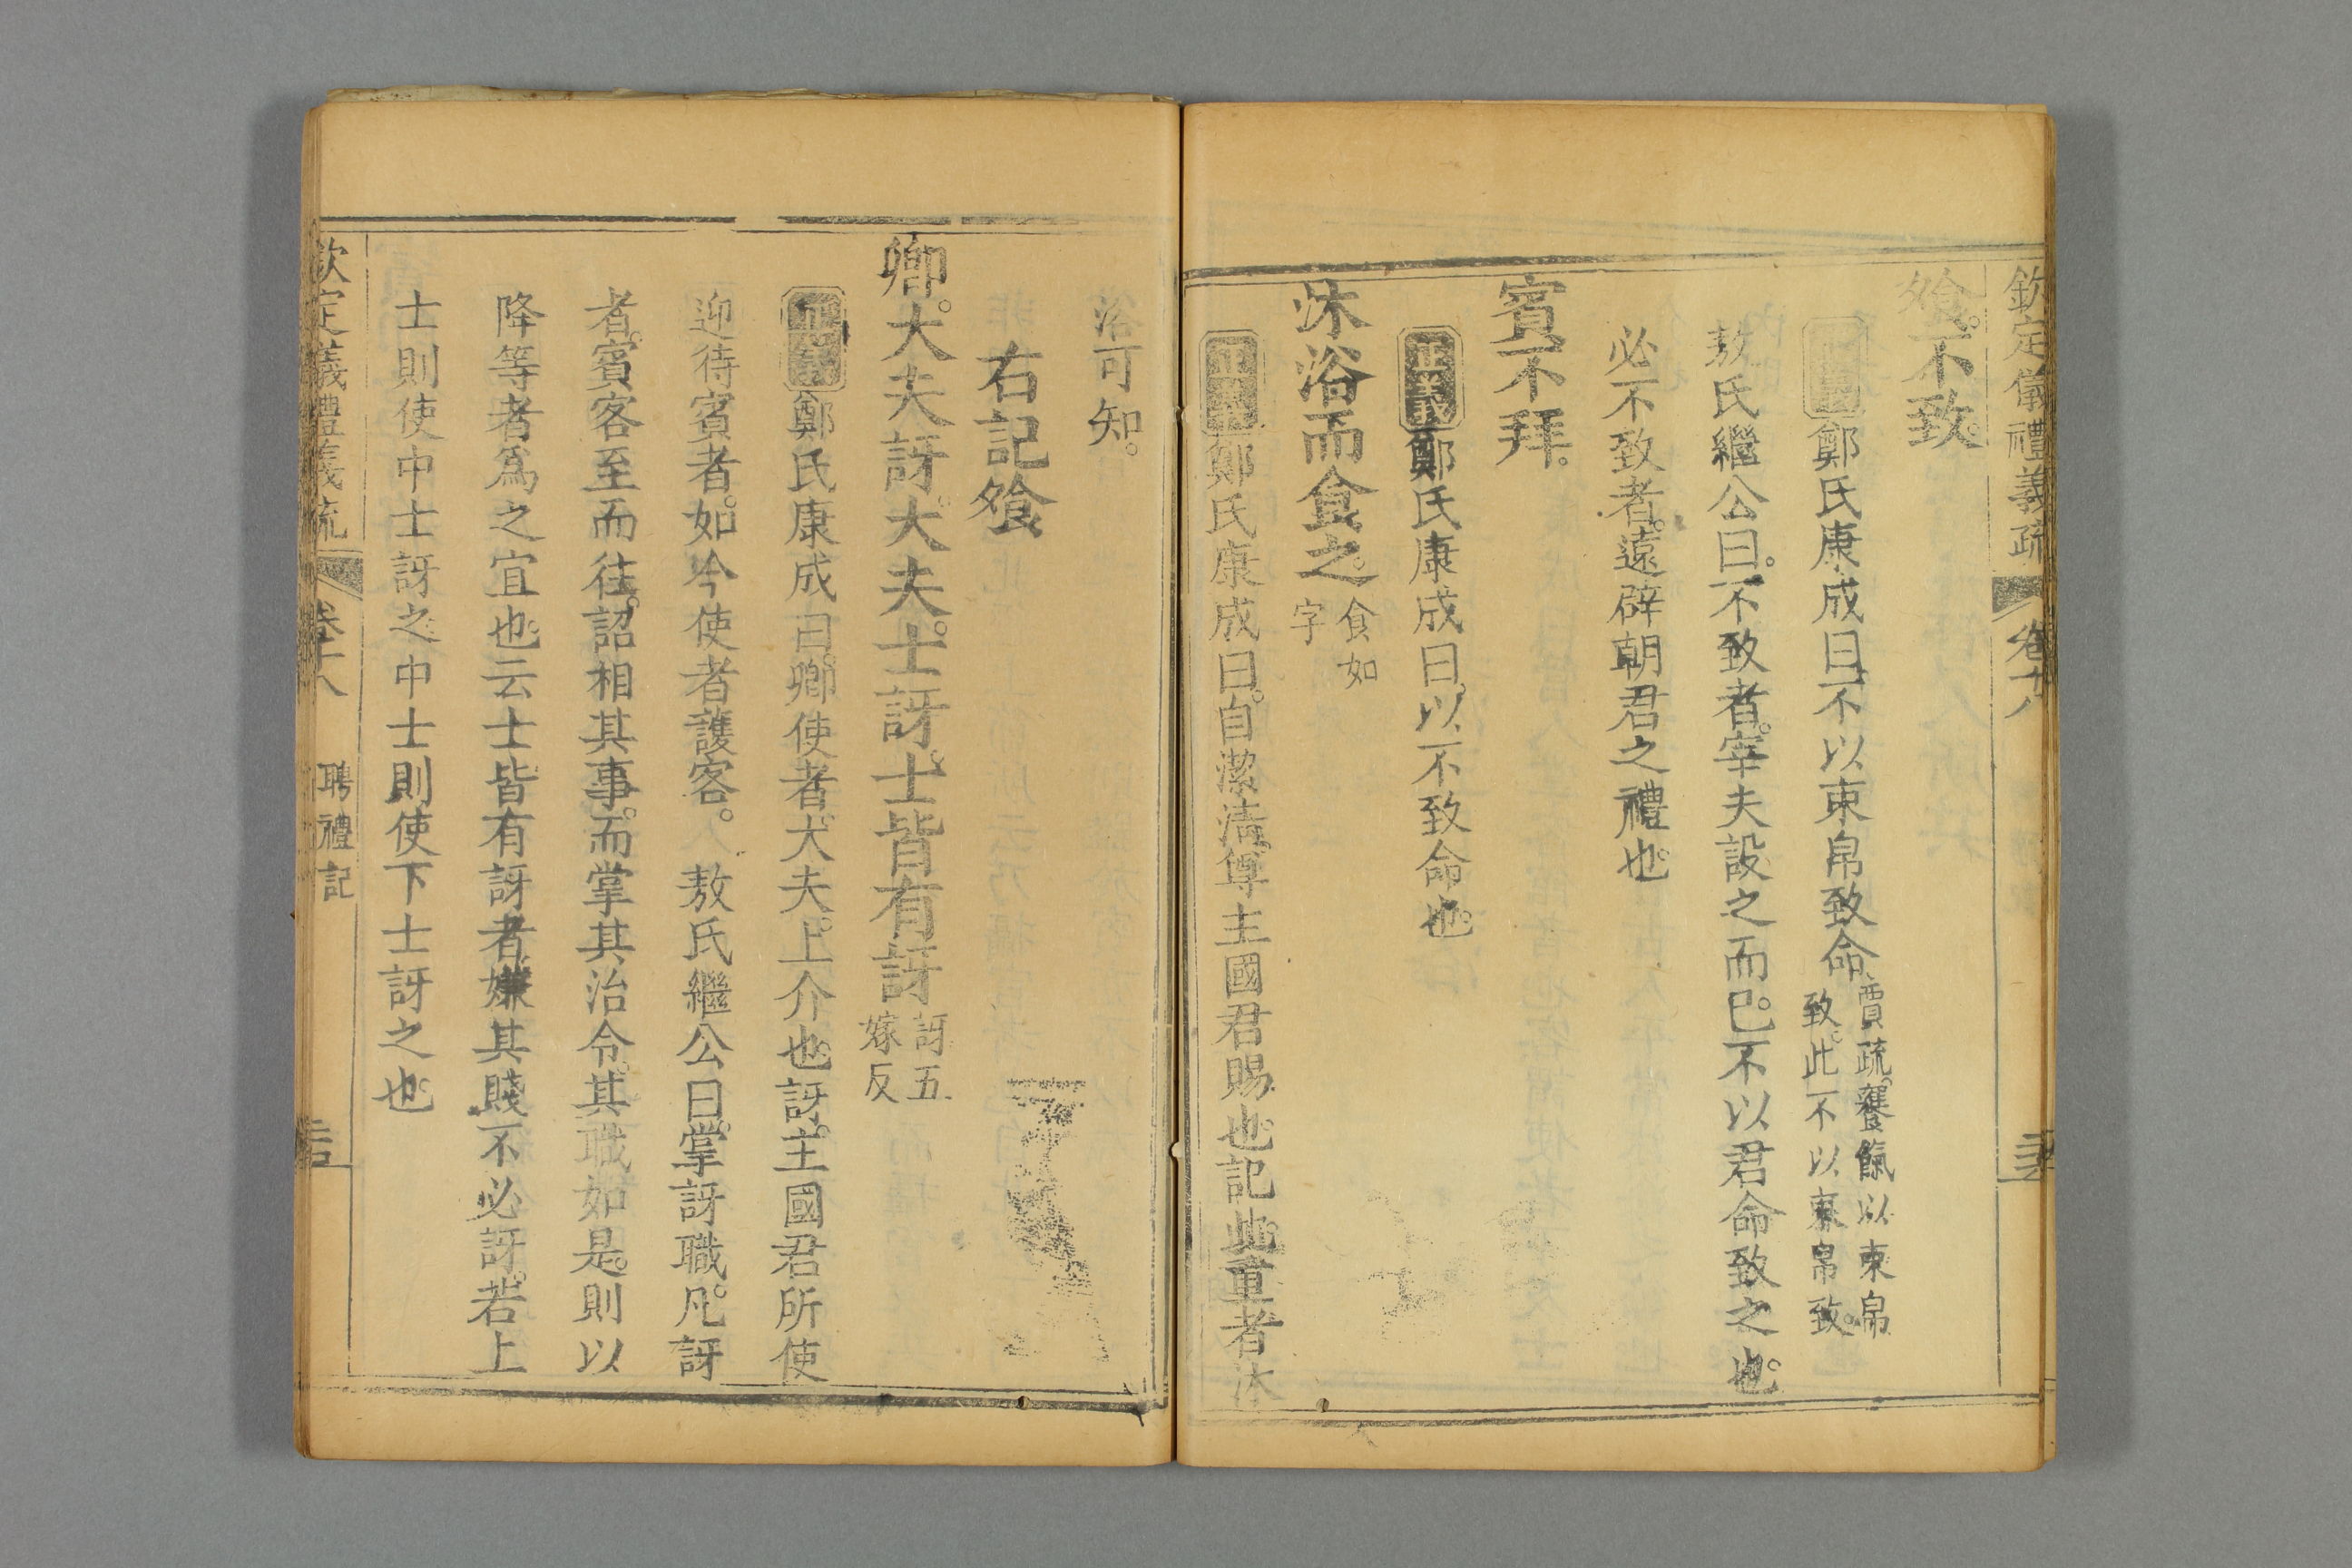 欽定儀禮義疏 卷十八
飧不致
正義鄭氏康成曰不以束帛致命賈疏饔餼以束帛致此不以束帛致
敖氏繼公曰不致者宰夫設之而已不以君命致之也
必不致者遠辟朝君之禮也
賓不拜
正義鄭氏康成曰以不致命也
沐浴而食之食如字
正義鄭氏康成曰自潔清尊主國君賜也記此重者沐
浴可知
右記飧
卿大夫訝大夫士訝士皆有訝訝五嫁反
正義鄭氏康成曰卿使者大夫上介也訝主國君所使
迎待賓者如今使者護客 敖氏繼公曰掌訝職凡訝
者賓客至而往詔相其事而掌其治令其職如是則以
降等者爲之宜也云士皆有訝者嫌其賤不必訝若上
士則使中士訝之中士則使下士訝之也
欽定儀禮義疏 卷十八 聘禮記